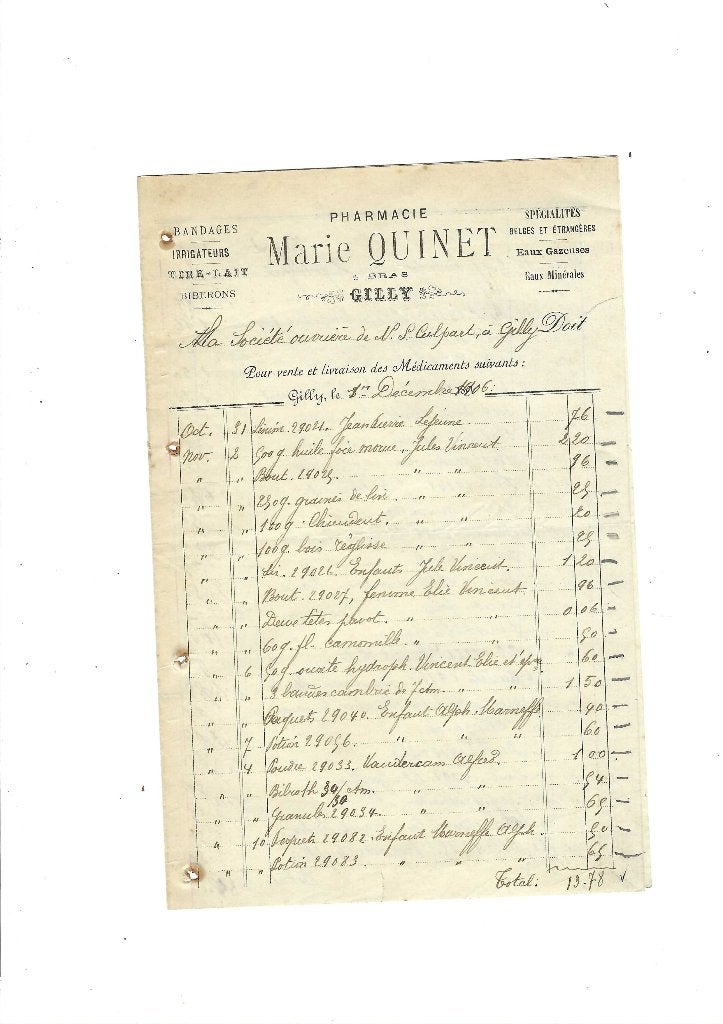 PHARMACIE
Marie QUINET
4 BRAS
GILLY
BANDAGES
IRRIGATEURS
TÊTE-LAIT
BIBERONS
SPÉCIALITÉS
BELGES ET ÉTRANGÈRES
Eaux Gazeuses
Eaux Minérales
A la Société ouvrière de Nt St Culpart, à Gilly Doit
Pour vente et livraison des Médicaments suivants:
Gilly, le 1er Décembre 1906:
Oct. 31 Linim. 29021. Jean Lejeune 76
Nov. 2 500g. huile foie morue, Jules Vincent 2 20
" " Bout. 29025. " " 96
" " 250g. graines de lin. " " 25
" " 100g. Chiendent. " " 20
" " 100g. bois réglisse " " 25
" " Sir. 29026. Enfants Jule Vincent. 1 20
" " Bout. 29027, femme Elie Vincent 96
" " Deux têtes pavot. " " 0 06
" " 60g. fl. camomille " " 50
" 6 50g. ouate hydroph. Vincent Elie et 60
" " 3 bandes cambric de 7 ctm. " " 1 50
" " Paquets 29040. Enfant Alph. Marneffe 40
" 7 Potion 29056. " " " 60
" 4 Poudre 29033. Vandercam Alfred. 1 00
" " 30/30 ctm. " " 54
" " Granules 29034. " " 65
" 10 Paquets 29082. Enfant Marneffe Alph. 50
" " Potion 29083. " " " 65
Total: 13.78